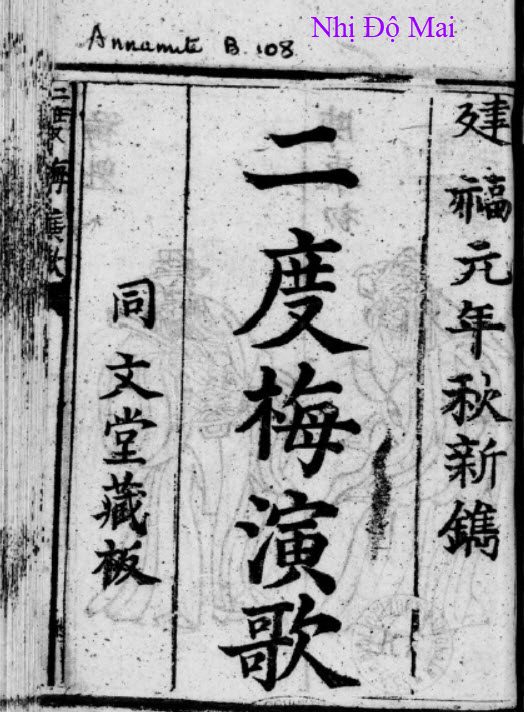 Annamite B. 108
Nhị Độ Mai
建福元年秋新鐫
二度梅演歌
同文堂藏板
二度梅演歌